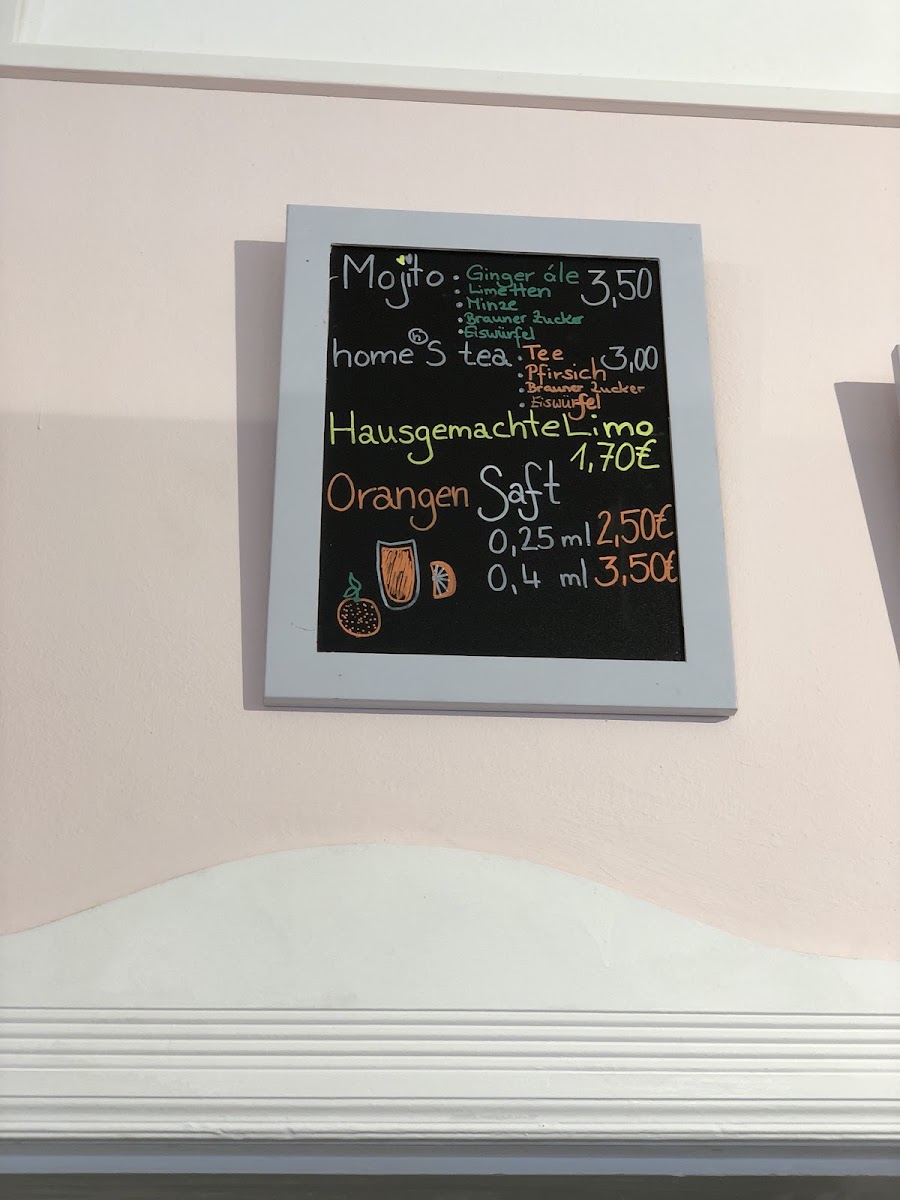 Mojito • Ginger ále 3,50
• Limetten
• Minze
• Brauner Zucker
• Eiswürfel
h
home's tea • Tee 3,00
• Pfirsich
• Brauner Zucker
• Eiswürfel
Hausgemachte Limo
1,70€
Orangen Saft
0,25 ml 2,50€
0,4 ml 3,50€